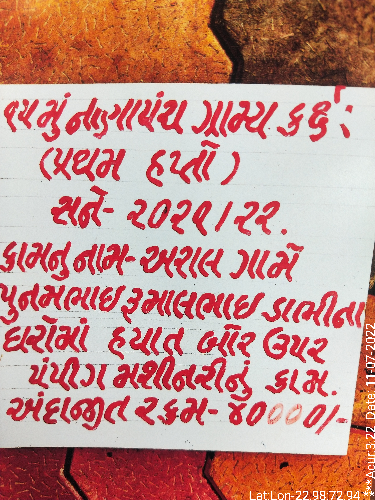 ૧૫ મું નાણાપંચ ગ્રામ્ય કક્ષ :
(પ્રથમ હપ્તો)
સને- ૨૦૨૧/૨૨.
કામનુ નામ- અરાલ ગામે
પુનમભાઇ રૂમાલભાઇ ડાભીના
ઘરોમાં હયાત બોર ઉપર
પંપીગ મશીનરીનું કામ.
અંદાજીત રકમ- ૪૦૦૦૦/-
Lat Lon-22.98:72.94
Date 11-07-2022